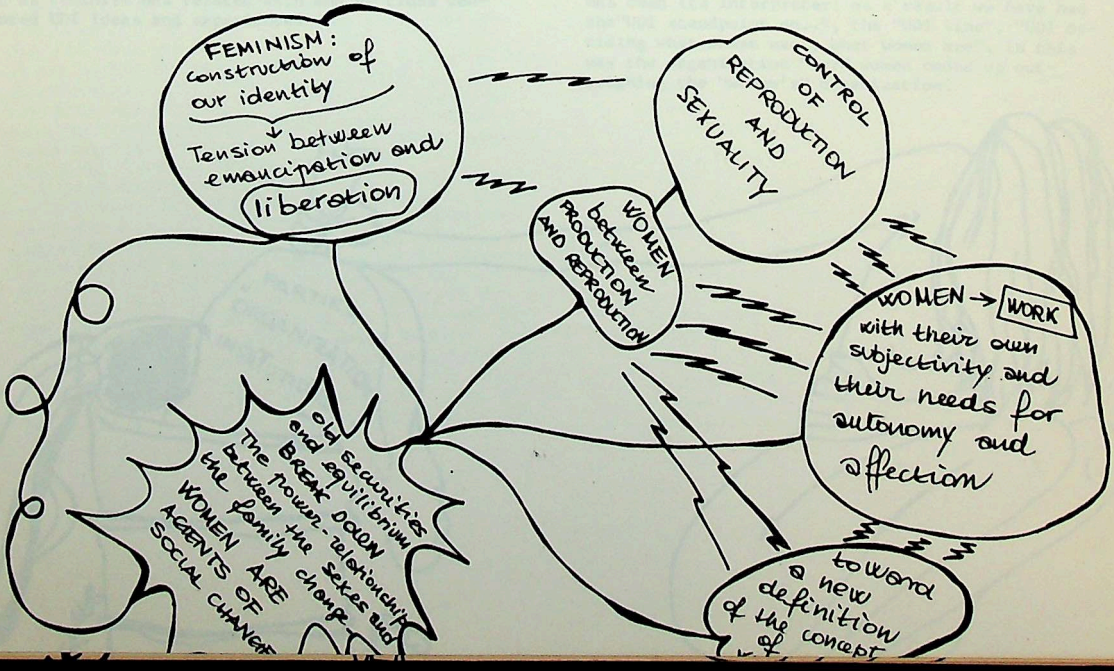 FEMINISM:
construction of
our identity
Tension between
emancipation and
liberation
CONTROL
OF
REPRODUCTION
AND
SEXUALITY
WOMEN
between
PRODUCTION
AND REPRODUCTION
WOMEN → WORK
with their own
subjectivity and
their needs for
autonomy and
affection
old securities
and equilibrium
BREAK DOWN
The power-relationship
between the sexes and
the family change
WOMEN ARE
AGENTS OF
SOCIAL CHANGE
toward
a new
definition
of the concept
of